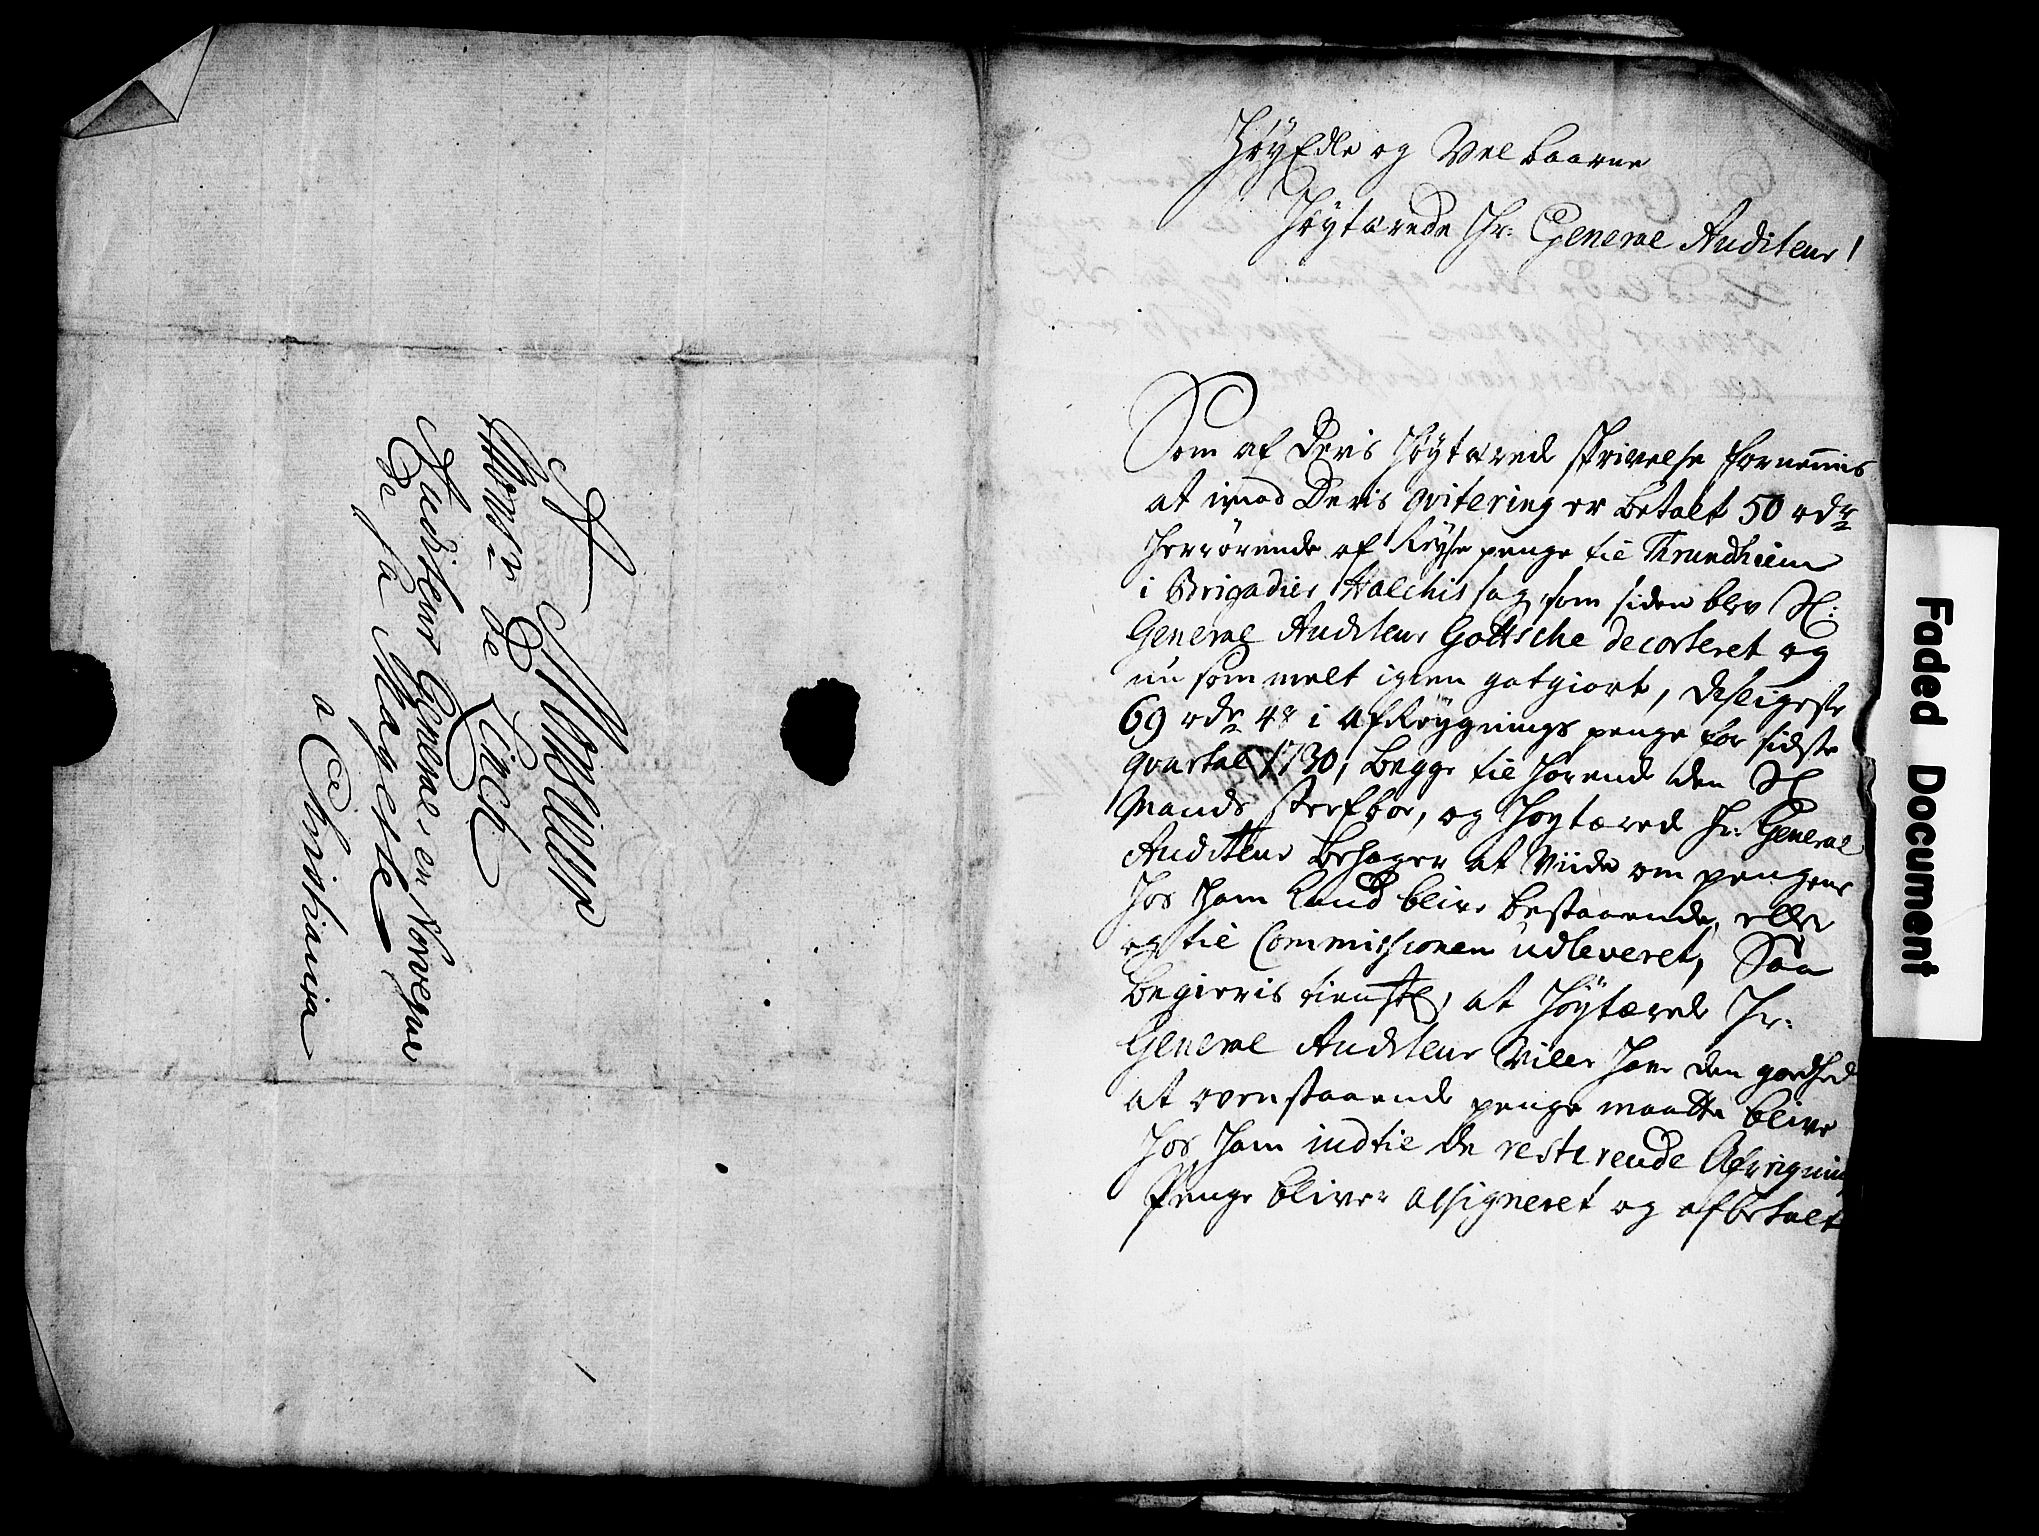 A Monsieur
Monsr. de Lück
Auditeur General en Norvegue
De sa Majesté
a Christiania
HøyEdle og Velbaarne
Høytærede Hr: General Auditeur!
Som af Deris Høytærede skrivelse fornemmis
at imod Deris qvitering er betalt 50 rdr
herrørende af Reyse penge til Trundhiem
i Brigadier Halchis sag, som siden blev Sl:
General Auditeur Gottsche decorteret og
nu som melt igien gotgiort, desligeste
69 rdr 48 i afRøygnings penge for sidste
qvartal 1730, begge til hørende den Sl
Mands sterfboe, og Høytærede Hr: General
Auditeur behager at Viide om pengene
hos ham kand blive bestaaende, eller
og til Commissionen udleveret, Saa
begieris tienstl, at Høytærede Hr:
General Auditeur Ville have den godhed
at ovenstaaende penge maatte blive
hos ham indtil de resterende Afregning
Penge bliver assigneret og afbetalt
Faded Document